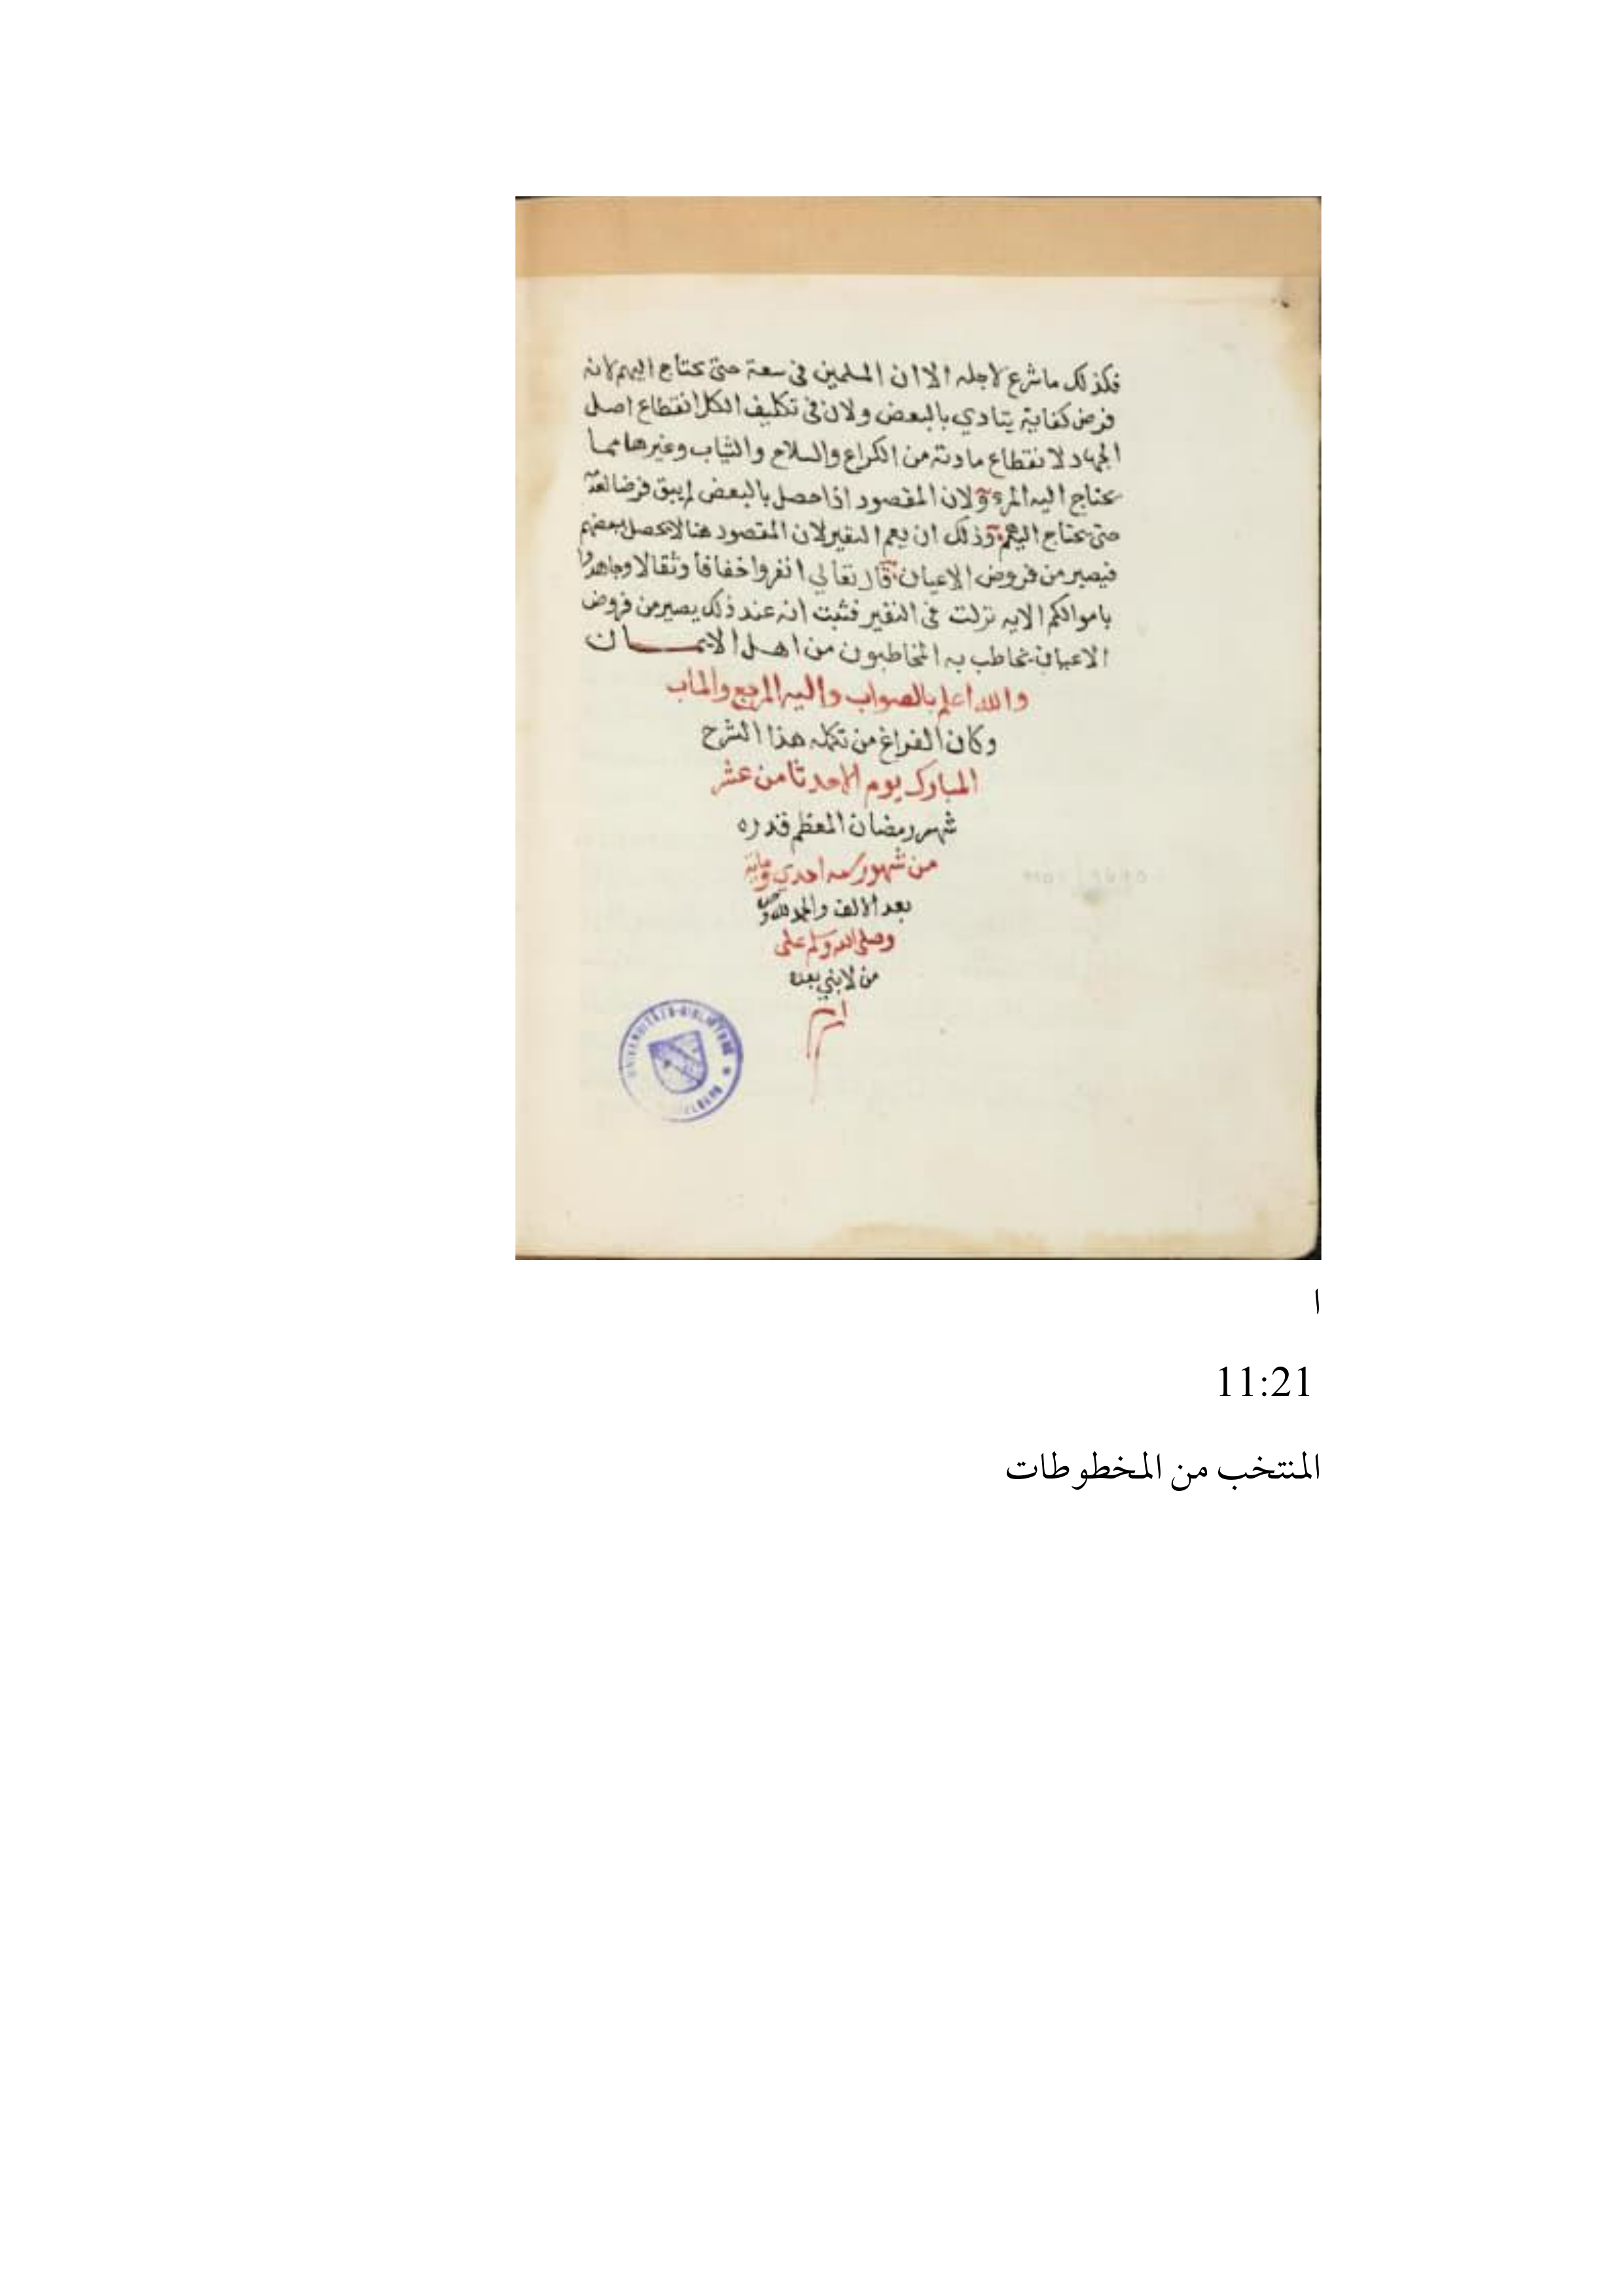 فكذلك ماشرع لاجله الا ان المسلمين في سعة حتى يحتاج اليهم لانه
فرض كفاية يتادي بالبعض ولان في تكليف الكل انقطاع اصل
الجهاد لانقطاع مادته من الكراع والسلاح والثياب وغيرها مما
يحتاج اليه المرء ولان المقصود اذا حصل بالبعض لم يبق فرضا
حتى يحتاج اليهم وذلك ان يعم النفير لان المقصود هنا لا يحصل ببعضهم
فيصير من فروض الاعيان قال تعالي انفروا خفافا وثقالا وجاهدوا
باموالكم الايه نزلت في النفير فثبت انه عند ذلك يصير من فروض
الاعيان يخاطب به المخاطبون من اهل الايمـــان
والله اعلم بالصواب واليه المرجع والماب
وكان الفراغ من تكمله هذا الشرح
المبارك يوم الاحد ثامن عشر
شهر رمضان المعظم قدره
من شهور سنه احدي وماية
بعد الالف والحمد لله
وصلى الله وسلم على
من لا نبي بعده
UNIVERSITÄTS-BIBLIOTHEK
ا
11:21
المنتخب من المخطوطات